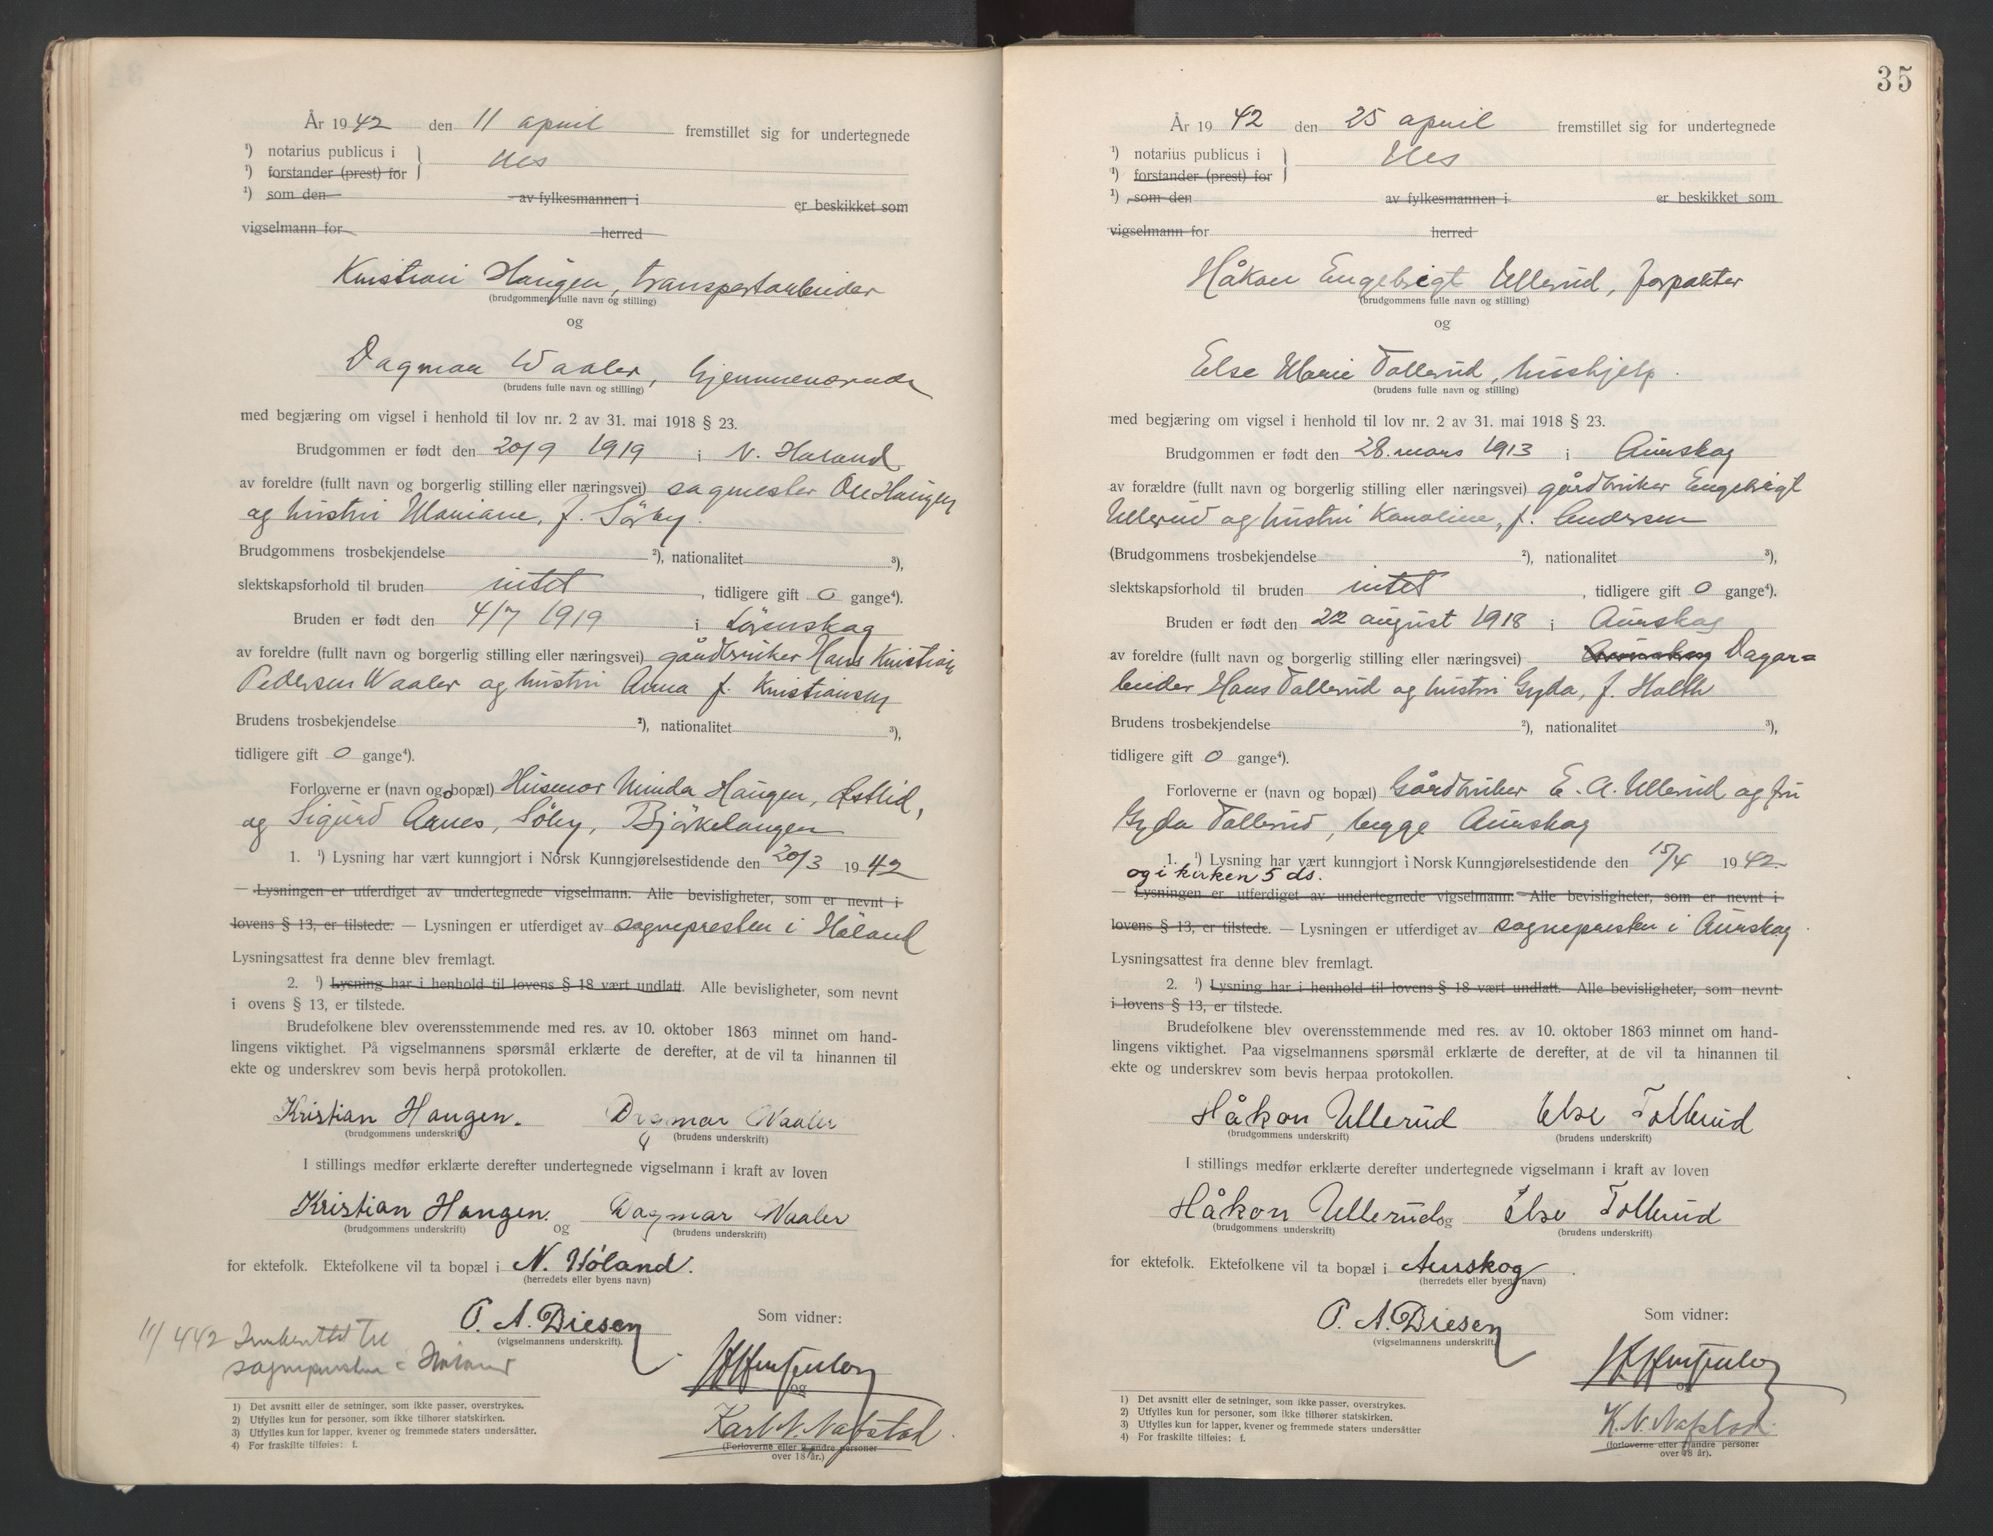 År 1942 den 11 april fremstillet sig for undertegnede
¹) notarius publicus i } Nes
¹) forstander (prest) for
¹) som den av fylkesmannen i er beskikket som
vigselmann for herred
Kristian Haugen, transportarbeider
(brudgommens fulle navn og stilling)
og
Dagmar Waaler, hjemmeværende
(brudens fulle navn og stilling)
med begjæring om vigsel i henhold til lov nr. 2 av 31. mai 1918 § 23.
Brudgommen er født den 20/9 1919 i N. Høland
av foreldre (fullt navn og borgerlig stilling eller næringsvei) sagmester Ole Haugen
og hustru Mariane, f. Sörby.
Brudgommens trosbekjendelse ²), nationalitet ³),
slektskapsforhold til bruden intet, tidligere gift 0 gange⁴).
Bruden er født den 4/7 1919 i Lørenskog
av foreldre (fullt navn og borgerlig stilling eller næringsvei) gårdbruker Hans Kristian
Pedersen Waaler og hustru Anna f. Kristiansen
Brudens trosbekjendelse ²), nationalitet ³),
tidligere gift 0 gange⁴).
Forloverne er (navn og bopæl) Husmor Minda Haugen, Østlid,
og Sigurd Aanes, Söby, Björkelangen
1. ¹) Lysning har vært kunngjort i Norsk Kunngjørelsestidende den 20/3 1942
— Lysningen er utferdiget av undertegnede vigselmann. Alle bevisligheter, som er nevnt i
lovens § 13, er tilstede. — Lysningen er utferdiget av sognepresten i Høland
Lysningsattest fra denne blev fremlagt.
2. ¹) Lysning har i henhold til lovens § 18 vært undlatt. Alle bevisligheter, som nevnt
i ovens § 13, er tilstede.
Brudefolkene blev overensstemmende med res. av 10. oktober 1863 minnet om hand-
lingens viktighet. På vigselmannens spørsmål erklærte de derefter, at de vil ta hinannen til
ekte og underskrev som bevis herpå protokollen.
Kristian Haugen. Dagmar Waaler
(brudgommens underskrift) (brudens underskrift)
I stillings medfør erklærte derefter undertegnede vigselmann i kraft av loven
Kristian Haugen. og Dagmar Waaler
(brudgommens underskrift) (brudens underskrift)
for ektefolk. Ektefolkene vil ta bopæl i N. Høland.
(herredets eller byens navn)
P. A. Diesen Som vidner:
(vigselmannens underskrift).
11/4 42 Innberettet til
sognepresten i Höland
og
Karl N. Nafstad.
(Forloverne eller 2 andre personer
over 18 år.)
1) Det avsnitt eller de setninger, som ikke passer, overstrykes.
2) Utfylles kun for personer, som ikke tilhører statskirken.
3) Utfylles kun for lapper, kvener og fremmede staters undersåtter.
4) For fraskilte tilføies: f.
35
År 1942 den 25 april fremstillet sig for undertegnede
¹) notarius publicus i } Nes
¹) forstander (prest) for
¹) som den av fylkesmannen i er beskikket som
vigselmann for herred
Håkon Engebrigt Ullerud, forpakter
(brudgommens fulle navn og stilling)
og
Else Marie Tollerud, hushjelp.
(brudens fulle navn og stilling)
med begjæring om vigsel i henhold til lov nr. 2 av 31. mai 1918 § 23.
Brudgommen er født den 28. mars 1913 i Aurskog
av forældre (fullt navn og borgerlig stilling eller næringsvei) gårdbruker Engebrigt
Ullerud og hustru Karoline, f. Andersen
(Brudgommens trosbekjendelse ²), nationalitet ³),
slektskapsforhold til bruden intet, tidligere gift 0 gange⁴).
Bruden er født den 22 august 1918 i Aurskog
av foreldre (fullt navn og borgerlig stilling eller næringsvei) Dagar-
beider Hans Tollerud og hustru Gyda, f. Holth
Brudens trosbekjendelse ²), nationalitet ³),
tidligere gift 0 gange⁴).
Forloverne er (navn og bopæl) Gårdbruker E. A. Ullerud og fru
Gyda Tollerud, begge Aurskog
1. ¹) Lysning har vært kunngjort i Norsk Kunngjørelsestidende den 15/4 1942
og i kirken 5 ds.
Lysningen er utferdiget av undertegnede vigselmann. — Alle bevisligheter, som er nevnt i
lovens § 13, er tilstede. — Lysningen er utferdiget av sognepresten i Aurskog.
Lysningsattest fra denne blev fremlagt.
2. ¹) Lysning har i henhold til lovens § 18 vært undlatt. — Alle bevisligheter, som nevnt
i lovens § 13, er tilstede.
Brudefolkene blev overensstemmende med res. av 10. oktober 1863 minnet om hand-
lingens viktighet. Paa vigselmannens spørsmål erklærte de derefter, at de vil ta hinannen til
ekte og underskrev som bevis herpaa protokollen.
Håkon Ullerud Else Tollerud
(brudgommens underskrift) (brudens underskrift)
I stillings medfør erklærte derefter undertegnede vigselmann i kraft av loven
Håkon Ullerud og Else Tollerud
(brudgommens underskrift) (brudens underskrift)
for ektefolk. Ektefolkene vil ta bopæl i Aurskog.
(herredets eller byens navn)
P. A. Diesen Som vidner:
(vigselmannens underskrift).
og
K. N. Nafstad.
(forloverne eller 2 andre personer
over 18 år).
1) Det avsnitt eller de setninger, som ikke passer, overstrykes.
2) Utfylles kun for personer, som ikke tilhører statskirken.
3) Utfylles kun for lapper, kvener og fremmede staters undersåtter
4) For fraskilte tilføies: f.